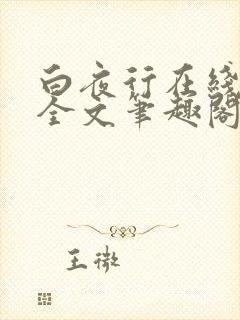 白夜行在线
全文笔趣阁
王微